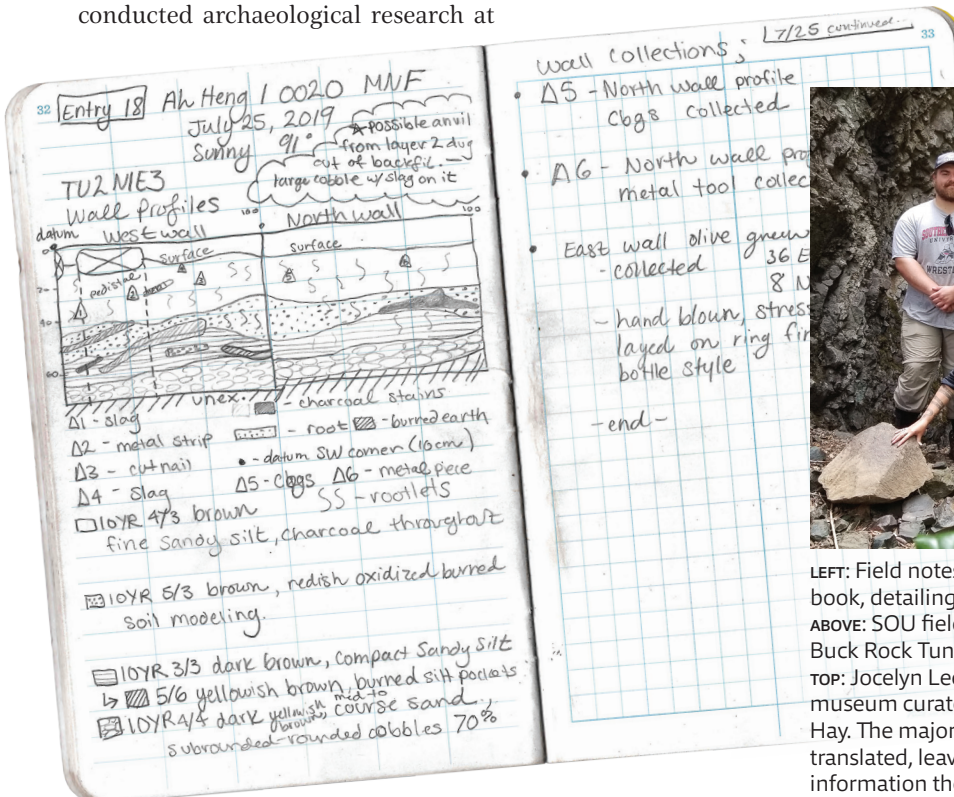 conducted archaeological research at
32
Entry 18 Ah Heng / 0020 MNF
July 25, 2019
Sunny 91°
possible anvil
from layer 2 dug
out of backfil. —
large cobble w/slag on it
TU2 N1E3
Wall Profiles
datum West wall 100 North wall 100
0
surface surface
pedistal
20
40
60
unex.
Δ1 - slag
Δ2 - metal strip
Δ3 - cut nail
Δ4 - slag
- charcoal stains
- root - burned earth
• - datum SW corner (10cm)
Δ5 - cbgs Δ6 - metal piece
SS - rootlets
10YR 4/3 brown
fine sandy silt, charcoal throughout
10YR 5/3 brown, redish oxidized burned
soil modeling.
10YR 3/3 dark brown, compact sandy silt
↳ 5/6 yellowish brown, burned silt pockets
10YR 4/4 dark yellowish brown, med to course sand,
subrounded-rounded cobbles 70%
7/25 continued...
33
Wall Collections;
• Δ5 - North wall profile
cbgs collected
• Δ6 - North wall pro
metal tool collec
• East wall olive green
- collected 36 E
8 N
- hand blown, stress
layed on ring fin
bottle style
- end -
SOUTHE
UNIVER
WREST
LEFT: Field notes
book, detailing
ABOVE: SOU fiel
Buck Rock Tun
TOP: Jocelyn Lee
museum curate
Hay. The major
translated, leav
information the